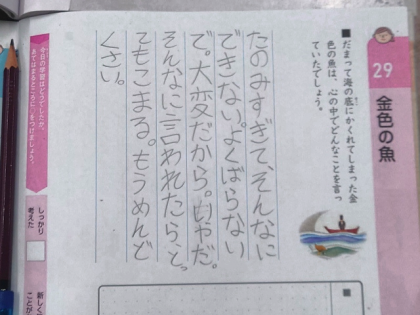 29
金色の魚
■だまって海の底にかくれてしまった金
色の魚は、心の中でどんなことを言っ
ていたでしょう。
たのみすぎて、そんなに
できない。よくばらない
で。大変だから。いやだ。
そんなに言われたら、とっ
てもこまる。もうめんど
くさい。
今日の学習はどうでしたか。
あてはまるところに、○をつけましょう。
しっかり
考えた